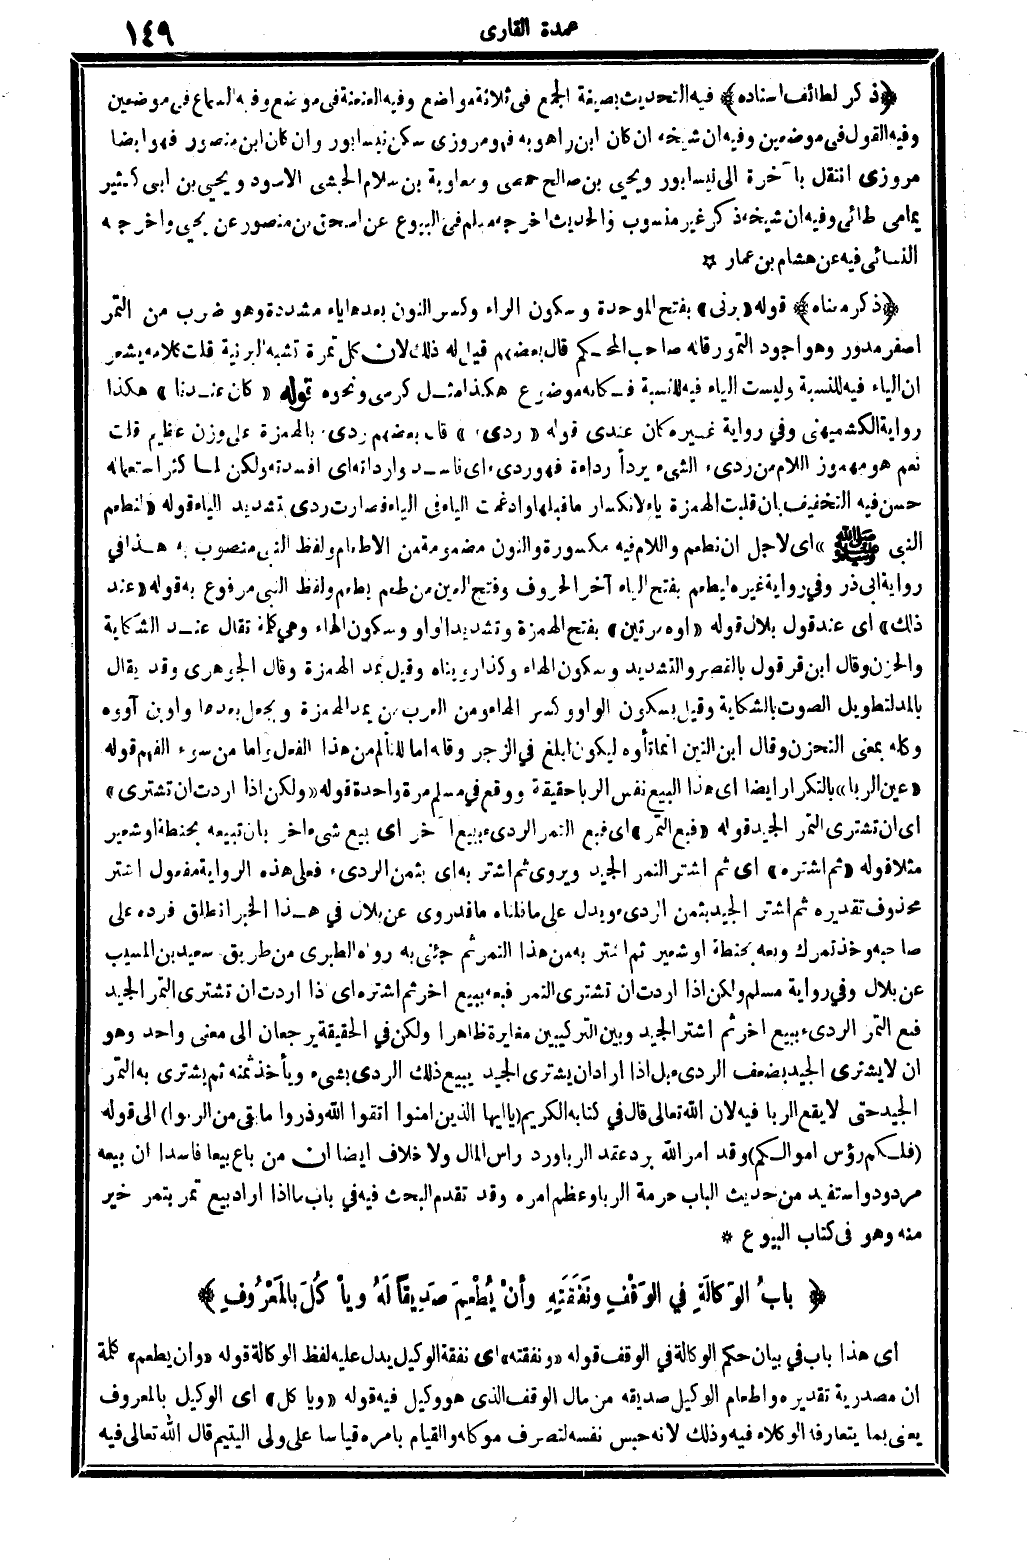 عمدة القارى ١٤٩
﴿ذكر لطائف اسناده﴾ فيه التحديث بصيغة الجمع فى ثلاثة مواضع وفيه العنعنة فى موضع وفيه السماع فى موضعين
وفيه القول فى موضعين وفيه ان شيخه ان كان ابن راهويه فهو مروزى سكن نيسابور وان كان ابن منصور فهو ايضا
مروزى انتقل بآخرة الى نيسابور ويحيى بن صالح حمصى ومعاوية بن سلام الحبشى الاسود ويحيى بن ابى كثير
يمامى طائى وفيه ان شيخه ذكر غير منسوب والحديث اخرجه مسلم فى البيوع عن اسحق بن منصور عن يحيى واخرجه
النسائى فيه عن هشام بن عمار ✡
﴿ذكر معناه﴾ قوله «برنى» بفتح الموحدة وسكون الراء وكسر النون بعدها ياء مشددة وهو ضرب من التمر
اصفر مدور وهو اجود التمور قاله صاحب المحكم قال بعضهم قيل له ذلك لان كل تمرة تشبه البرنية قلت كلامه يشعر
ان الياء فيه للنسبة وليست الياء فيه للنسبة فكأنه موضوع هكذا مثل كرسى ونحوه قوله «كان عندنا» هكذا
رواية الكشميهنى وفي رواية غيره كان عندى قوله «ردىء» قال بعضهم ردىء بالهمزة على وزن عظيم قلت
نعم هو مهموز اللام من ردىء الشىء يردأ رداءة فهو ردىء اى فاسد واردأته اى افسدته ولكن لما كثر استعماله
حسن فيه التخفيف بان قلبت الهمزة ياء لانكسار ما قبلها وادغمت الياء فى الياء فصارت ردى بتشديد الياء قوله «لنطعم
النبى ﷺ» اى لاجل ان نطعم واللام فيه مكسورة والنون مضمومة من الاطعام ولفظ النبى منصوب به هذا في
رواية ابى ذر وفي رواية غيره ليطعم بفتح الياء آخر الحروف وفتح العين من طعم يطعم ولفظ النبى مرفوع به قوله «عند
ذلك» اى عند قول بلال قوله «اوه مرتين» بفتح الهمزة وتشديد الواو وسكون الهاء وهي كلمة تقال عند الشكاية
والحزن وقال ابن قرقول بالقصر والتشديد وسكون الهاء وكذا رويناه وقيل بمد الهمزة وقال الجوهرى وقد يقال
بالمد لتطويل الصوت بالشكاية وقيل بسكون الواو وكسر الهاء ومن العرب من يمد الهمزة ويجعل بعدها واوين آووه
وكله بمعنى التحزن وقال ابن التين انما تأوه ليكون ابلغ في الزجر وقاله اما للتألم من هذا الفعل واما من سوء الفهم قوله
«عين الربا» بالتكرار ايضا اى هذا البيع نفس الربا حقيقة ووقع في مسلم مرة واحدة قوله «ولكن اذا اردت ان تشترى»
اى ان تشترى التمر الجيد قوله «فبع التمر» اى فبع التمر الردىء ببيع آخر اى بيع شىء اخر بان تبيعه بحنطة او شعير
مثلا قوله «ثم اشتره» اى ثم اشتر التمر الجيد ويروى ثم اشتر به اى بثمن الردىء فعلى هذه الرواية مفعول اشتر
محذوف تقديره ثم اشتر الجيد بثمن الردىء ويدل على ما قلناه ما قد روى عن بلال في هذا الخبر انطلق فرده على
صاحبه وخذ تمرك وبعه بحنطة او شعير ثم اشتر به من هذا التمر ثم جئنى به رواه الطبرى من طريق سعيد بن المسيب
عن بلال وفي رواية مسلم ولكن اذا اردت ان تشترى التمر فبعه ببيع اخر ثم اشتره اى اذا اردت ان تشترى التمر الجيد
فبع التمر الردىء ببيع اخر ثم اشتر الجيد وبين التركيبين مغايرة ظاهرا ولكن في الحقيقة يرجعان الى معنى واحد وهو
ان لا يشترى الجيد بضعف الردىء بل اذا اراد ان يشترى الجيد يبيع ذلك الردى بشىء ويأخذ ثمنه ثم يشترى به التمر
الجيد حتى لا يقع الربا فيه لان الله تعالى قال في كتابه الكريم (يا ايها الذين امنوا اتقوا الله وذروا ما بقى من الربوا) الى قوله
(فلكم رؤس اموالكم) وقد امر الله برد عقد الربا ورد راس المال ولا خلاف ايضا ان من باع بيعا فاسدا ان بيعه
مردود واستفيد من حديث الباب حرمة الربا وعظم امره وقد تقدم البحث فيه في باب ما اذا اراد بيع تمر بتمر خير
منه وهو فى كتاب البيوع *
﴿ بابُ الوَكالَةِ في الوَقْفِ ونَفَقَتِهِ وأنْ يُطْعِمَ صَدِيقاً لَهُ ويأْكُلَ بالمَعْرُوفِ ﴾
أى هذا باب في بيان حكم الوكالة في الوقف قوله «ونفقته» اى نفقة الوكيل يدل عليه لفظ الوكالة قوله «وأن يطعم» كلمة
ان مصدرية تقديره واطعام الوكيل صديقه من مال الوقف الذى هو وكيل فيه قوله «ويا كل» اى الوكيل بالمعروف
يعنى بما يتعارفه الوكلاء فيه وذلك لانه حبس نفسه لتصرف موكله والقيام بامره قياسا على ولى اليتيم قال الله تعالى فيه